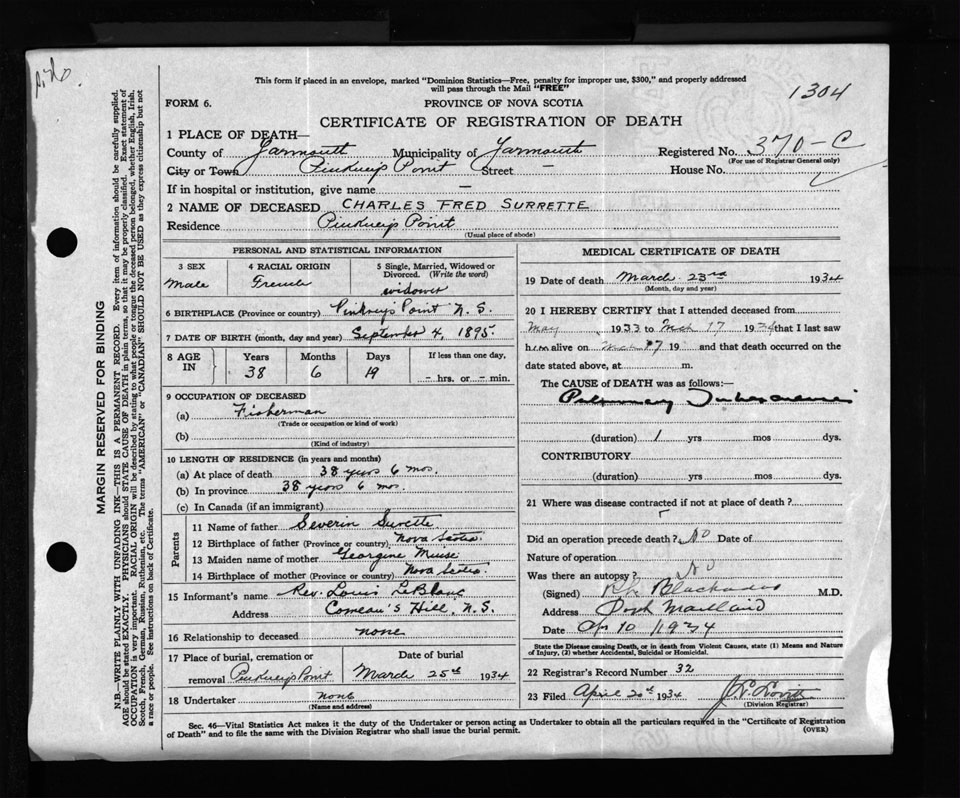 This form if placed in an envelope, marked "Dominion Statistics—Free, penalty for improper use, $300," and properly addressed
will pass through the Mail "FREE"
1304
FORM 6.
PROVINCE OF NOVA SCOTIA
CERTIFICATE OF REGISTRATION OF DEATH
1 PLACE OF DEATH—
County of Yarmouth Municipality of Yarmouth Registered No. 370-C
(For use of Registrar General only)
City or Town Pinkney's Point Street — House No.
If in hospital or institution, give name —
2 NAME OF DECEASED CHARLES FRED SURRETTE
Residence Pinkney's Point
(Usual place of abode)
PERSONAL AND STATISTICAL INFORMATION
3 SEX
Male
4 RACIAL ORIGIN
French
5 Single, Married, Widowed or Divorced. (Write the word)
widower
6 BIRTHPLACE (Province or country) Pinkney's Point N. S.
7 DATE OF BIRTH (month, day and year) September 4, 1895.
8 AGE IN
Years Months Days If less than one day,
38 6 19 – hrs. or – min.
9 OCCUPATION OF DECEASED
(a) Fisherman
(Trade or occupation or kind of work)
(b)
(Kind of industry)
10 LENGTH OF RESIDENCE (in years and months)
(a) At place of death 38 years 6 mos.
(b) In province 38 years 6 mos.
(c) In Canada (if an immigrant)
Parents
11 Name of father Severin Surette
12 Birthplace of father (Province or country) Nova Scotia
13 Maiden name of mother Georgine Muise
14 Birthplace of mother (Province or country) Nova Scotia
15 Informant's name Rev. Louis LeBlanc
Address Comeau's Hill, N. S.
16 Relationship to deceased none
17 Place of burial, cremation or removal Pinkney's Point
Date of burial
March 25th 1934
18 Undertaker none
(Name and address)
MEDICAL CERTIFICATE OF DEATH
19 Date of death March 23rd 1934
(Month, day and year)
20 I HEREBY CERTIFY that I attended deceased from
May 1933 to Mch 17 1934 that I last saw
him alive on Mch 17 19 and that death occurred on the
date stated above, at m.
The CAUSE OF DEATH was as follows:—
Pulmonary Tuberculosis
(duration) 1 yrs mos dys.
CONTRIBUTORY
(duration) yrs mos dys.
21 Where was disease contracted if not at place of death?
Did an operation precede death? No Date of
Nature of operation
Was there an autopsy? No
(Signed) Blackadar M.D.
Address Port Maitland
Date Ap 10 1934
State the Disease causing Death, or in death from Violent Causes, state (1) Means and Nature of Injury, (2) whether Accidental, Suicidal or Homicidal.
22 Registrar's Record Number 32
23 Filed April 20th 1934
(Division Registrar)
Sec. 46—Vital Statistics Act makes it the duty of the Undertaker or person acting as Undertaker to obtain all the particulars required in the "Certificate of Registration
of Death" and to file the same with the Division Registrar who shall issue the burial permit.
(OVER)
MARGIN RESERVED FOR BINDING
N.B.—WRITE PLAINLY WITH UNFADING INK—THIS IS A PERMANENT RECORD. Every item of information should be carefully supplied.
AGE should be stated EXACTLY. PHYSICIANS should STATE CAUSE OF DEATH in plain terms, so that it may be properly classified. Exact statement of
OCCUPATION is very important. RACIAL ORIGIN will be described by stating to what people or tongue the deceased person belonged, whether English, Irish,
Scotch, French, German, Russian, Ruthenian, etc. The terms "AMERICAN" or "CANADIAN" SHOULD NOT BE USED as they express citizenship but not
a race or people. See instructions on back of Certificate.